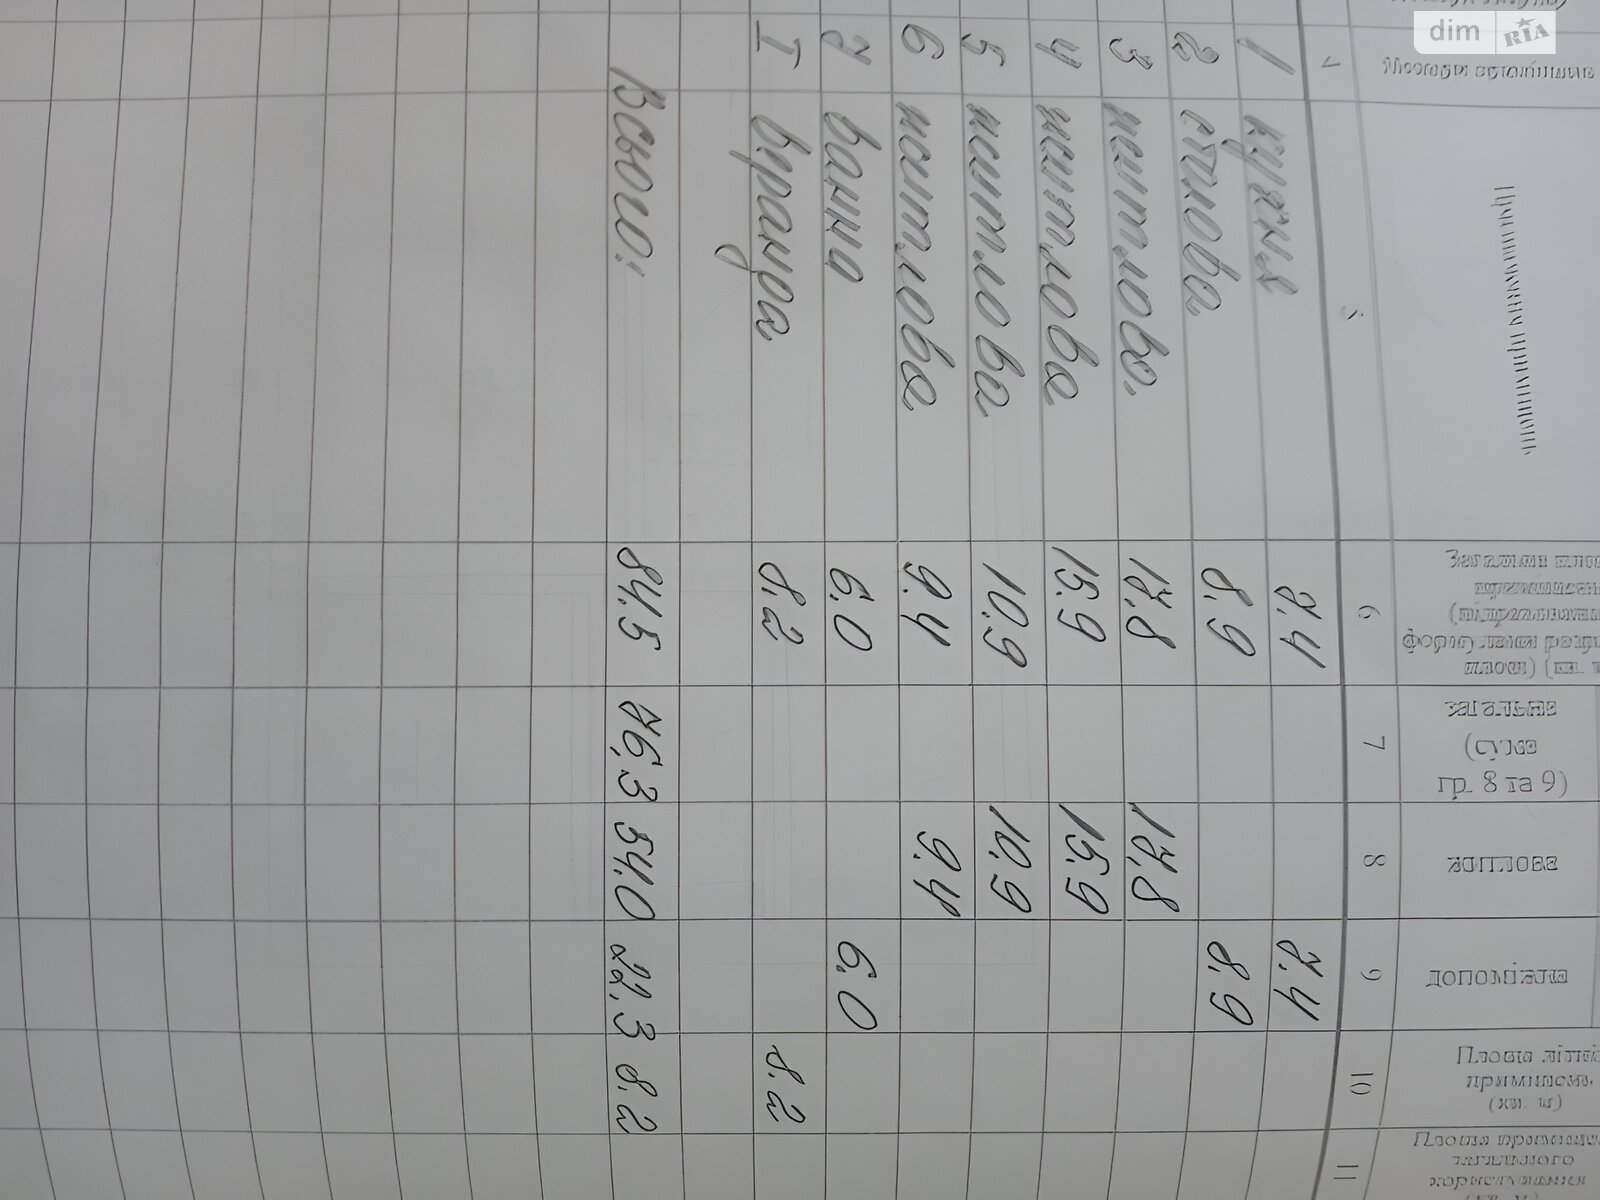 dim RIA
Номери
Призначення приміщень
Загальна
приміщень
площі) (кв. м)
загальна
(сума
гр. 8 та 9)
житлова
допоміжна
Площа літніх
приміщень
(кв. м)
Площа приміщень
загального
користування
4 5 6 7 8 9 10 11
1 кухня 7.4 7.4
2 столова 8.9 8.9
3 житлова 17.8 17,8
4 житлова 15.9 15.9
5 житлова 10.9 10.9
6 житлова 9.4 9.4
7 ванна 6.0 6.0
I веранда 8.2 8.2
Всього: 84.5 76,3 54.0 22,3 8.2